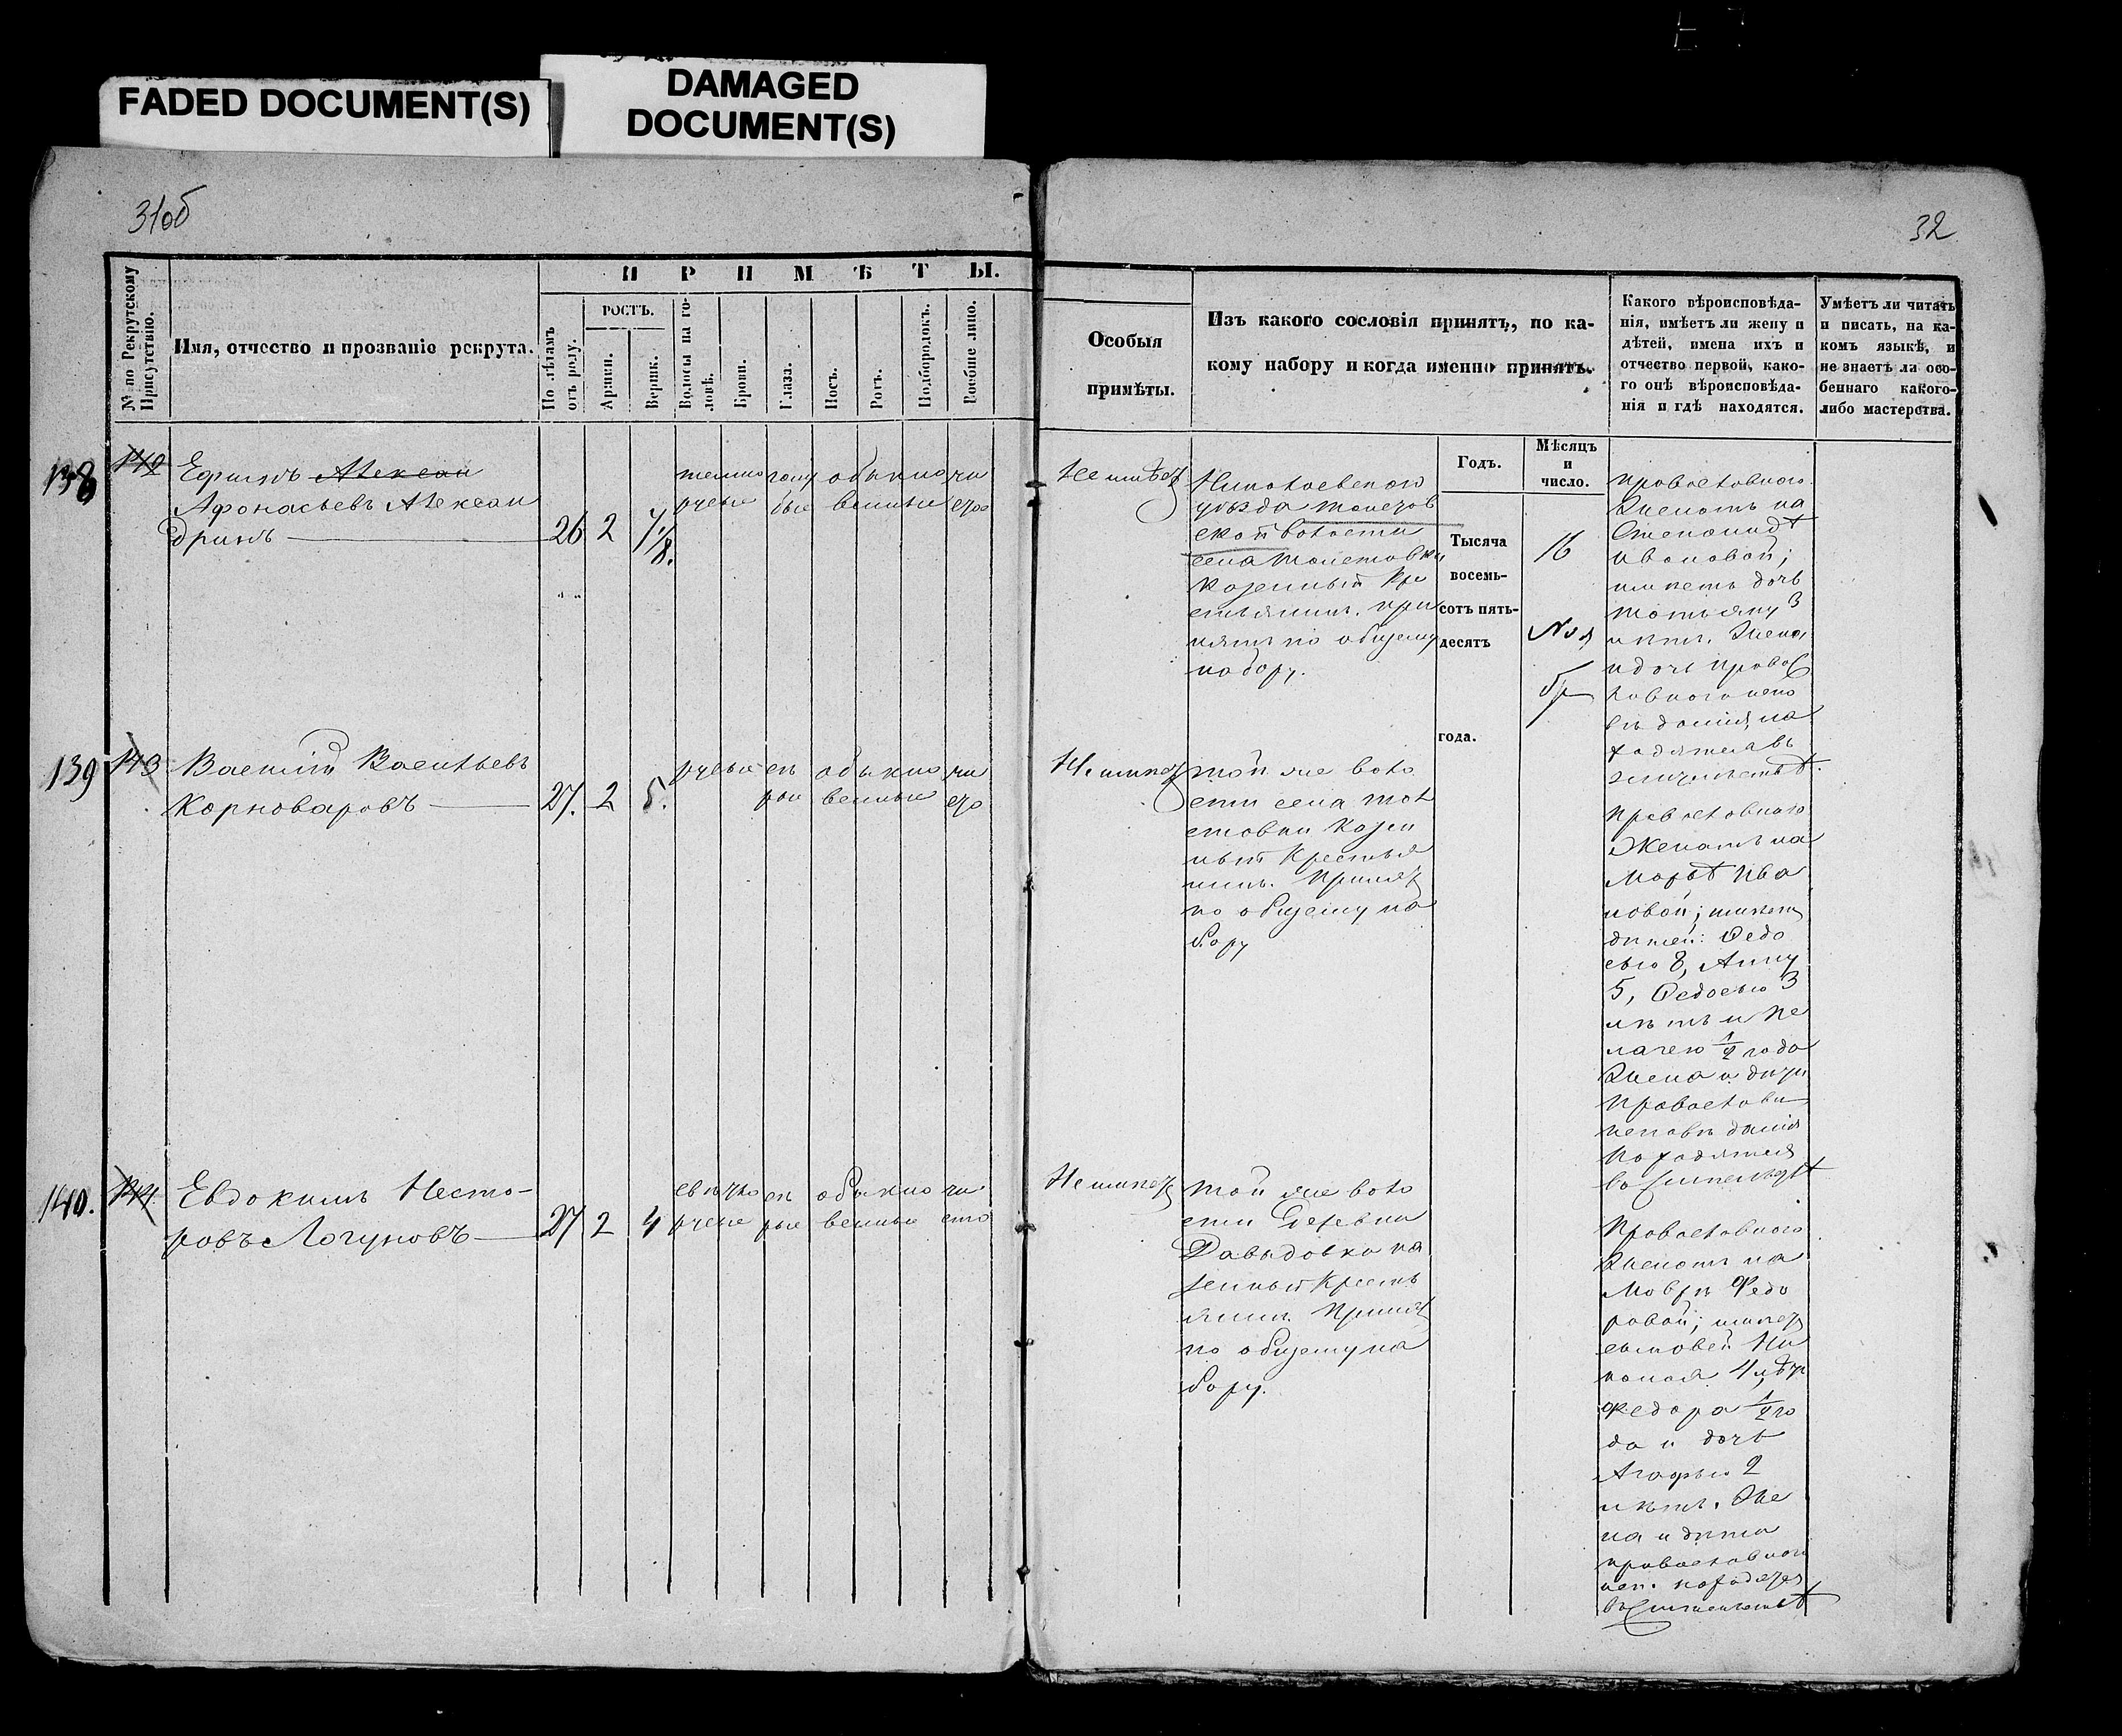 FADED DOCUMENT(S)
DAMAGED
DOCUMENT(S)
31об
32
№ по Рекрутскому Присутствію.
Имя, отчество и прозваніе рекрута.
ПРИМѢТЫ.
По лѣтамъ отъ роду.
РОСТЪ.
Аршин.
Вершк.
Волосы на го-
ловѣ.
Брови.
Глаза.
Носъ.
Ротъ.
Подбородокъ.
Вообще лицо.
Особыя
примѣты.
Изъ какого сословія принятъ, по ка-
кому набору и когда именно принятъ.
Какого вѣроисповѣда-
нія, имѣетъ ли жену и
дѣтей, имена ихъ и
отчество первой, како-
го онѣ вѣроисповѣда-
нія и гдѣ находятся.
Умѣетъ ли читать
и писать, на ка-
комъ языкѣ, и
не знаетъ ли осо-
беннаго какого-
либо мастерства.
Годъ.
Мѣсяцъ
и
число.
Тысяча
восемь-
сотъ пять-
десятъ
года.
16
Ноя
бр
138
142
Ефимъ Алексан
Афонасьевъ Алексан
дринъ
26 2 7 1/8.
темно голу обыкно чи
русые бые венные сто
Не имѣет
Николаевскаго
уѣзда
ской волости
села Толстовки
Казенный Кре
стьянинъ. при
нятъ по общему
набору.
Православнаго
Женатъ на
Степанидѣ
Ивановой;
имѣетъ дочь
Татьяну 3
лѣтъ. Жена
и дочь Правос
лавнаго испо
вѣданія, на
ходятся въ
жительствѣ.
139
143
Василій Васильевъ
Карноваровъ
27. 2 5.
русые сѣ обыкно чи
рые венные сто
Не имѣет
той же воло
сти села Тол
стовки Казен
ный Крестья
нинъ. Принят
по общему на
бору
Православнаго
Женатъ на
Марѳѣ Ива
новой; имѣет
дѣтей: Ѳедо
сью 8, Анну
5, Ѳедосью 3
лѣтъ и Пе
лагею 1/2 года
Жена и дѣти
Православн
исповѣданія
Находятся
въ жительствѣ
140.
144
Евдокимъ Несто-
ровъ Логуновъ
27 2 4
свѣтло сѣ обыкно чи
русые рые венные сто
Не имѣет
той же воло
сти Деревни
Давыдовки ка
зенный Кресть
янинъ. Принят
по общему на
бору.
Православнаго
Женатъ на
Маврѣ Федо
ровой; имѣет
сыновей Ни
колая 4 лѣтъ
Федора 1/2 го
да и дочь
Агафью 2
лѣтъ. Же
на и дѣти
православнаго
исп. находятся
въ жительствѣ